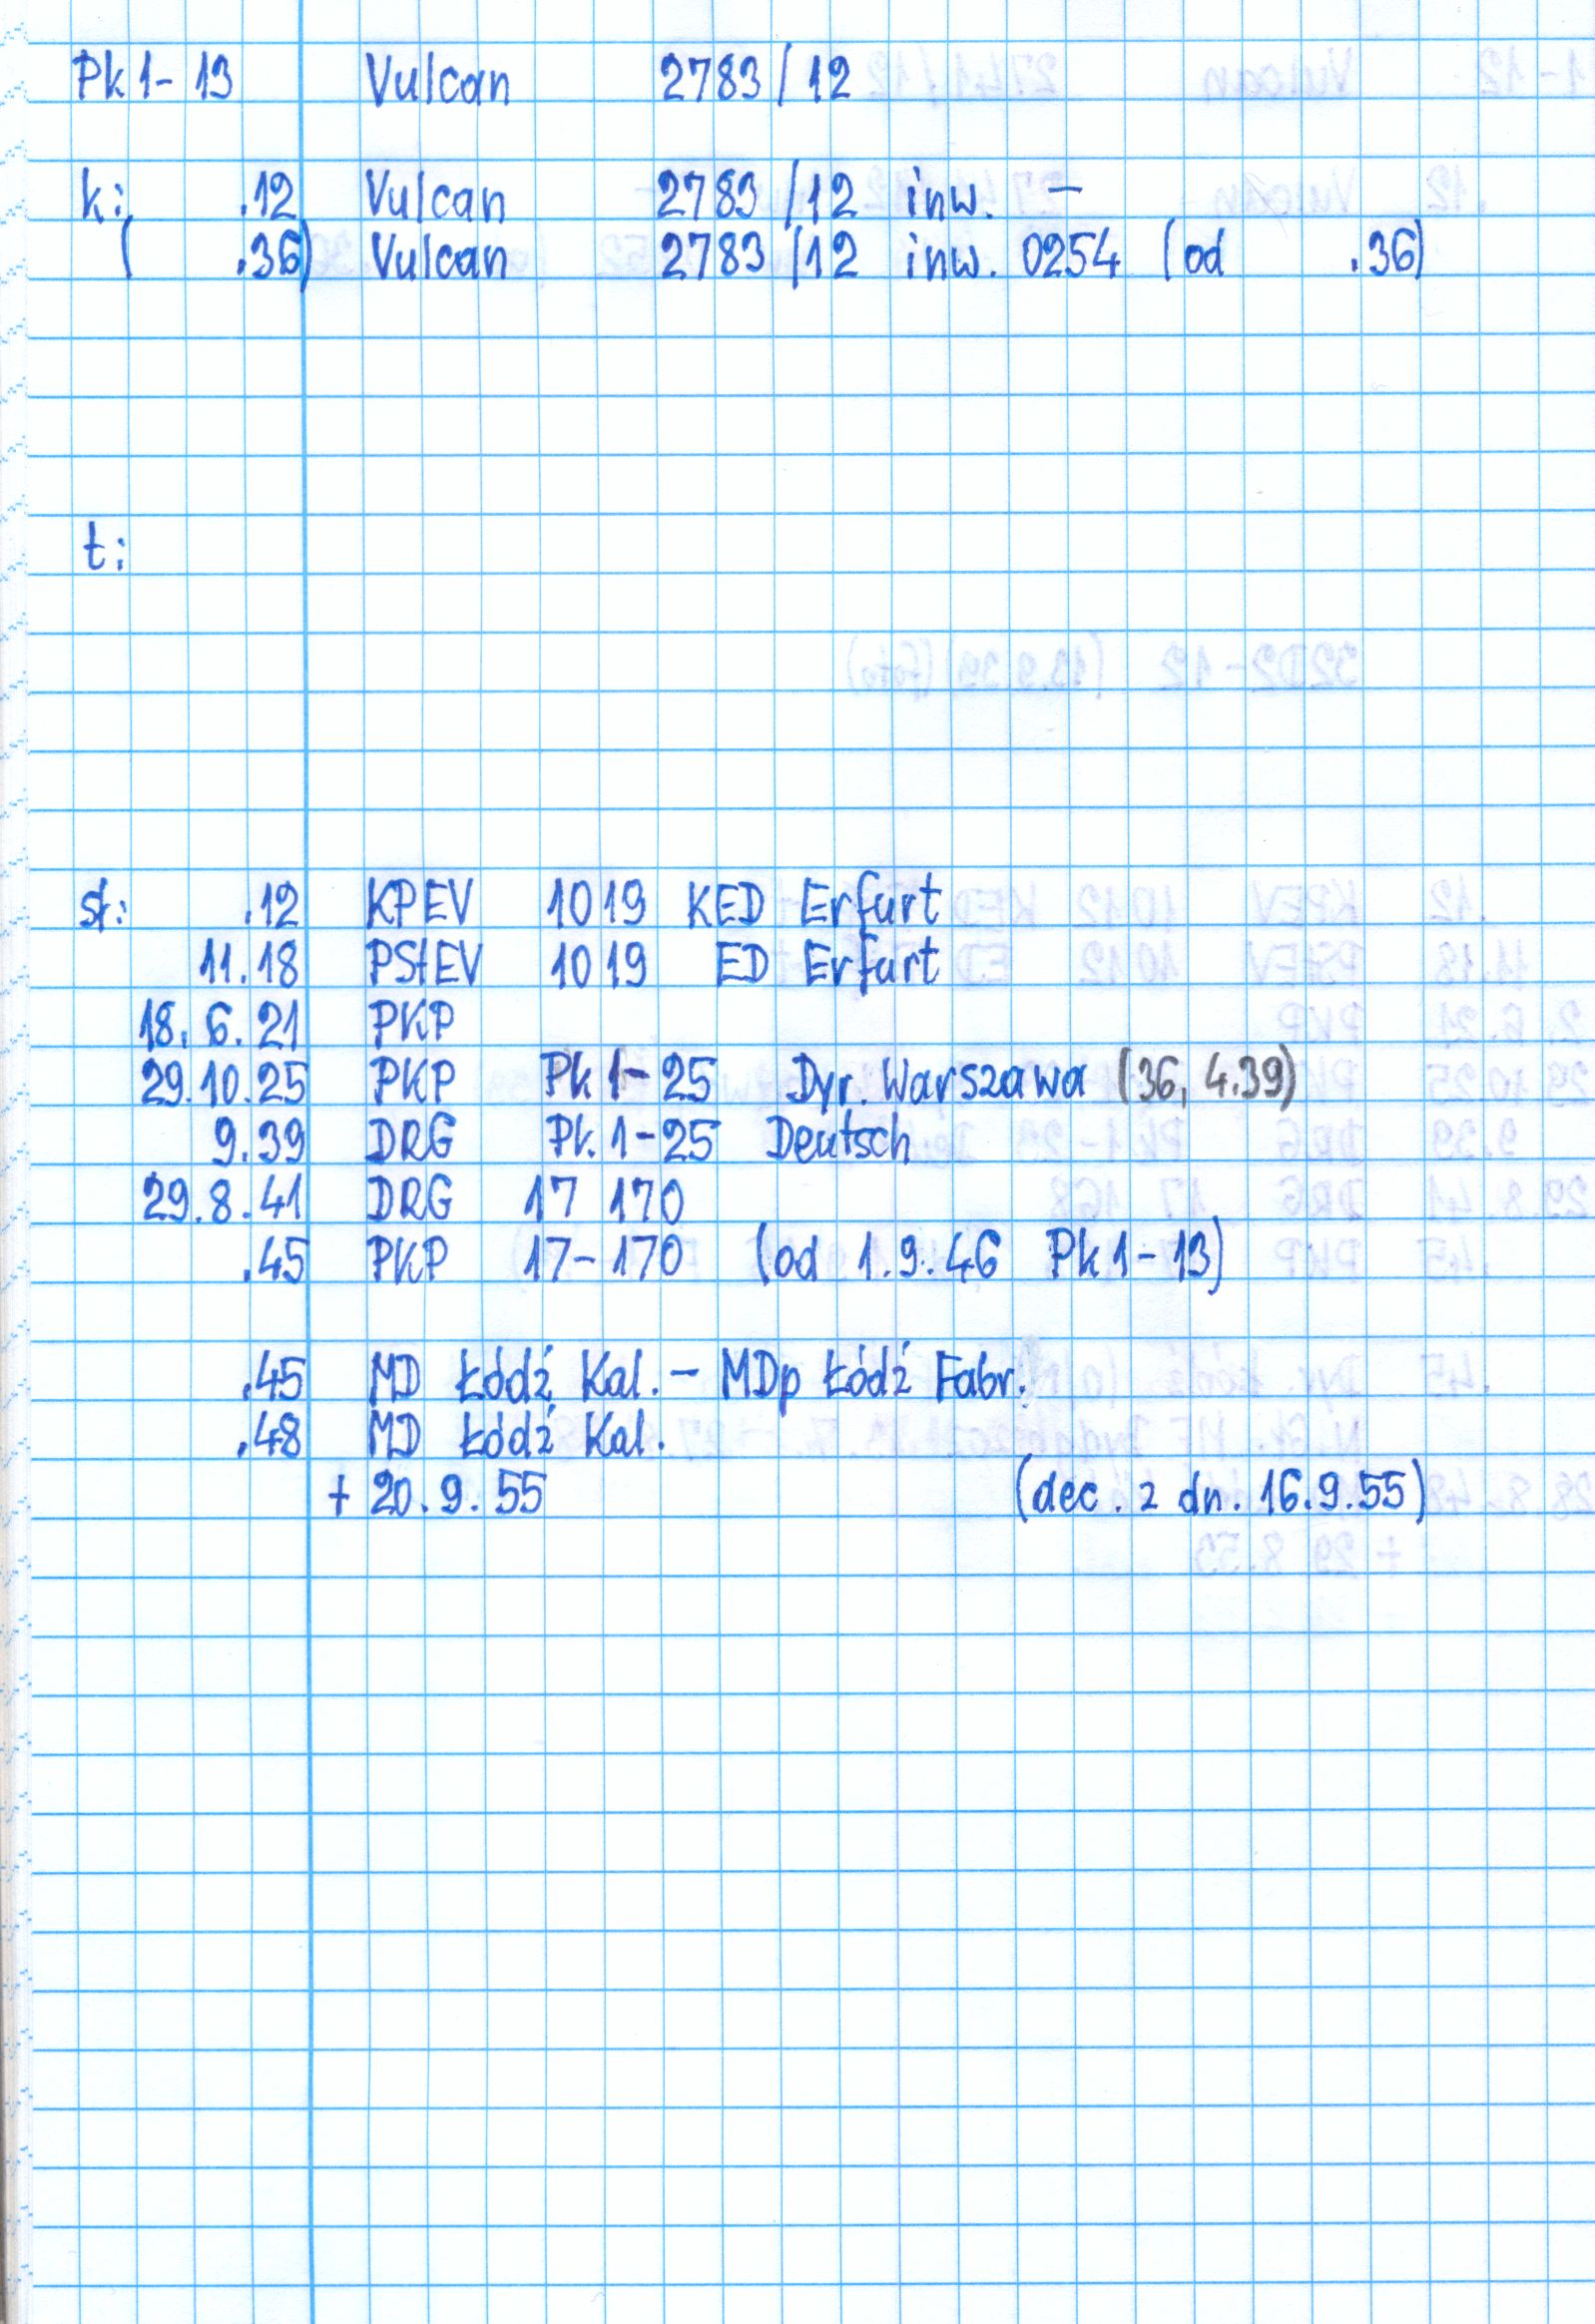 Pk1-13 Vulcan 2783/12
k: .12 Vulcan 2783/12 inw. -
( .36) Vulcan 2783/12 inw. 0254 (od .36)
t:
st: .12 KPEV 1019 KED Erfurt
11.18 PStEV 1019 ED Erfurt
18.6.21 PKP
29.10.25 PKP Pk1-25 Dyr. Warszawa (36, 4.39)
9.39 DRG Pk.1-25 Deutsch
29.8.41 DRG 17 170
.45 PKP 17-170 (od 1.9.46 Pk1-13)
.45 MD Łódź Kal. - MDp Łódź Fabr.
.48 MD Łódź Kal.
+ 20.9.55 (dec. z dn. 16.9.55)